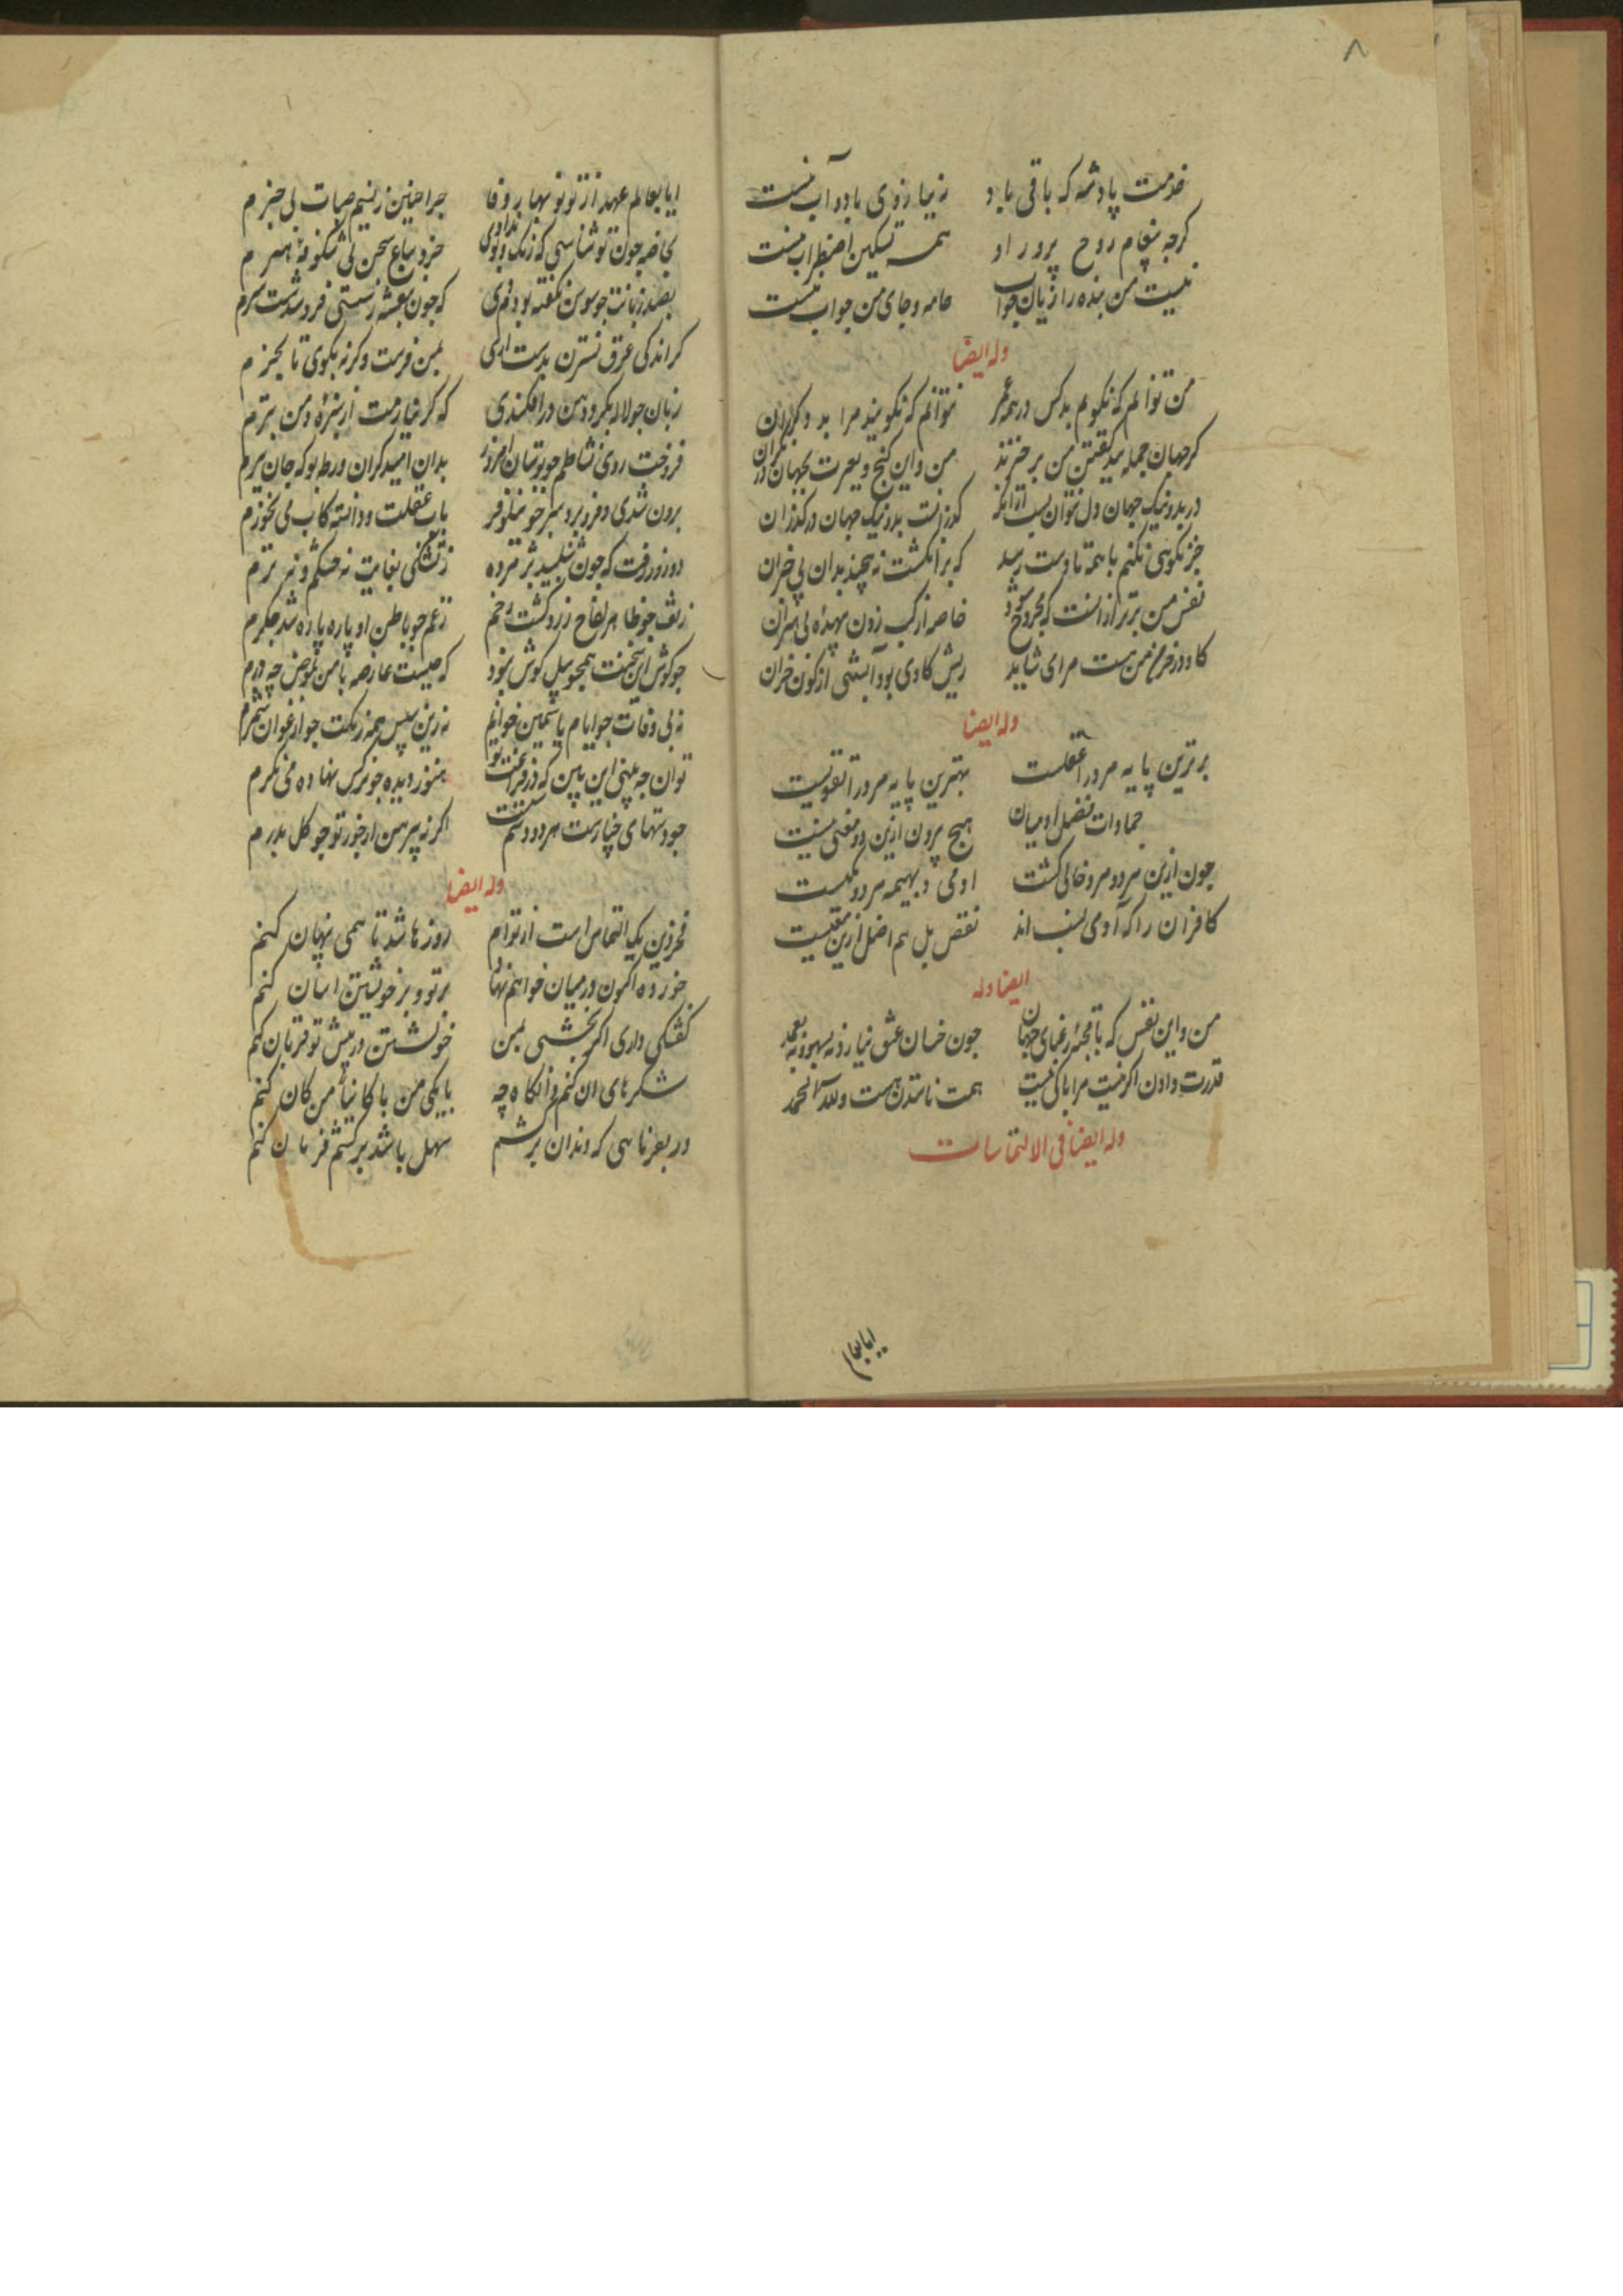 ۸
خدمت پادشه که باقی باد
نه بیارزوی باد و آب نیست
کرجه پیغام روح پرور او
همه تسکین اضطراب نیست
نیست من بنده را زبان جواب
جامه و جای من جواب نیست
وله ایضا
من توانم که نکویم بد کس در همه عمر
نتوانم که نکویند مرا بد دکران
کر جهان جمله ببد کفتن من برخیزند
من و این کنج و بعبرت بجهان در نکران
در بد و نیک جهان دل نتوان بست ازانک
کذرانست بد و نیک جهان کذران
جز نکویی نکنم با همه تا دست رسد
که بر انکشت نه پیچند بدان بی خبران
نفس من برتر ازانست که مجروح شود
خاصه از کب زدن بیهده بی بصران
کاو در خرمن من هست مرا می شاید
ریش کاوی بود آبستنی از کون خران
وله ایضا
برترین پایه مرد را عقلست
بهترین پایه مرد را تقویست
جمادات فضل ادمیان
هیچ بیرون ازین دو معنی نیست
چون ازین هر دو مرد خالی کشت
ادمی و بهیمه هر دو یکیست
کافران را که آدمی نسب اند
نقص بل هم اضل ازین معنیست
ایضا وله
من و این نفس که با قحبه رعنای جهان
جون خسان عشق نبازد نه بسهو و نه بعمد
قدرت دادن اکر نیست مرا باکی نیست
همت ناستدن هست و لله الحمد
وله ایضا فی الالتماسات
ایا بعالم
ایا بعالم عهد از تو نوبهار وفا
جرا جنین ز نسیم صبات بی خبرم
بخاصه جون تو شناسی که رنک و بوی نداد
خرد بباغ سخن بی شکوفه هنرم
بصد زبانت جو سوسن بکفته بودم دی
که جون بنفشه ز مستی فرو شدست سرم
کر اندکی عرق نسترن بدست اری
بمن فرست و کرنه بکوی تا بخرم
زبان جو لاله بکرد دهن در افکندی
که کر نیارمت از سبزه دمن بترم
فروخت روی نشاطم جو بوستان افروز
بدان امید کران ورطه بو که جان ببرم
برون شدی و فرو برد سر جو نیلوفر
باب غفلت و دانسته کاب می نخورم
دو روز رفت که جون شنبلید پژمرده
ز تشنکی بغایت نه خشکم و نه ترم
ز غم جو باطن او پاره پاره شد جکرم
جو کوش این سخنت همجو پیل کوش نبود
که چیست عارضه با من بعوض چه درم
نه بی وفات جو ایام یاسمین خوانم
نه زین سپس همه زنکت جو ارغوان شمرم
توان چه بینی این بین که در فراغت تو
هنوز دیده جو نرکس نهاده می نکرم
جو دستهای چنارست هر دو دستم
اکر نه پیرهن از جور تو جو کل بدرم
وله ایضا
فخر دین یک التماس است از توام
روزها شد تا همی پنهان کنم
خورده اکنون در میان خواهم نهاد
بر تو و بر خویشتن اسان کنم
کفتکی داری اکر بخشی بمن
خویشتن در پیش تو قربان کنم
شکرهای ان کنم وانکاه چه
با یکی من با کانیها من کان کنم
ور بفرمایی که دندان برکشم
سهل باشد برکشم فرمان کنم